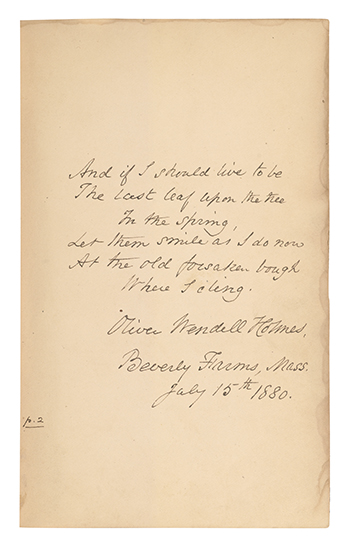 And if I should live to be
The last leaf upon the tree
In the spring,
Let them smile as I do now
At the old forsaken bough
Where I cling.
Oliver Wendell Holmes,
Beverly Farms, Mass.
July 15th 1880.
p. 2